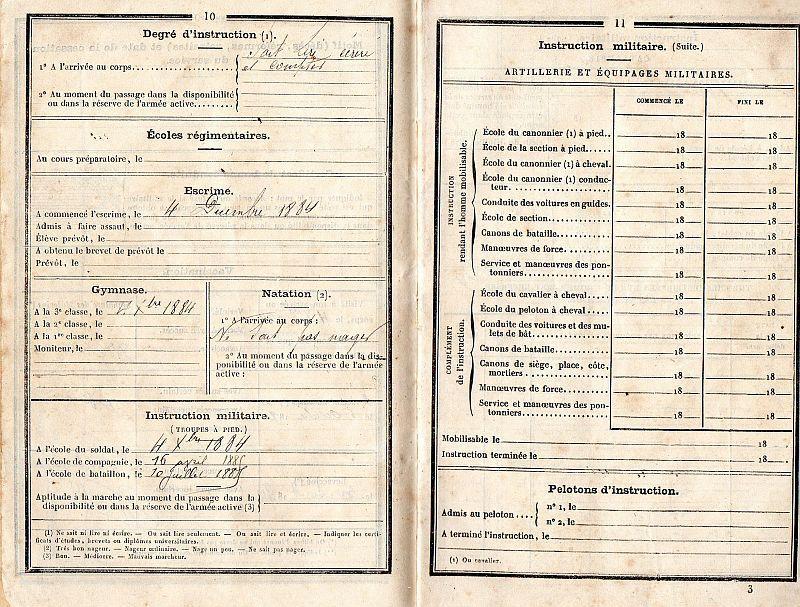 10
Degré d'instruction (1).
1° A l'arrivée au corps
Sait lire écrire
et compter
2° Au moment du passage dans la disponibilité
ou dans la réserve de l'armée active
Écoles régimentaires.
Au cours préparatoire, le
Escrime.
A commencé l'escrime, le 4 Décembre 1884
Admis à faire assaut, le
Élève prévôt, le
A obtenu le brevet de prévôt le
Prévôt, le
Gymnase.
A la 3e classe, le 4 Xbre 1884
A la 2e classe, le
A la 1re classe, le
Moniteur, le
Natation (2).
1° A l'arrivée au corps :
Ne sait pas nager
2° Au moment du passage dans la dis-
ponibilité ou dans la réserve de l'armée
active :
Instruction militaire.
(TROUPES A PIED.)
A l'école du soldat, le 4 Xbre 1884
A l'école de compagnie, le 16 avril 1885
A l'école de bataillon, le 10 juillet 1885
Aptitude à la marche au moment du passage dans la
disponibilité ou dans la réserve de l'armée active (3)
(1) Ne sait ni lire ni écrire. — Ou sait lire seulement. — Ou sait lire et écrire. — Indiquer les certi-
ficats d'études, brevets ou diplômes universitaires.
(2) Très bon nageur. — Nageur ordinaire. — Nage un peu. — Ne sait pas nager.
(3) Bon. — Médiocre. — Mauvais marcheur.
11
Instruction militaire. (Suite.)
ARTILLERIE ET ÉQUIPAGES MILITAIRES.
COMMENCÉ LE
FINI LE
INSTRUCTION
rendant l'homme mobilisable.
École du canonnier (1) à pied.. 18 18
École de la section à pied... 18 18
École du canonnier (1) à cheval. 18 18
École du canonnier (1) conduc-
teur 18 18
Conduite des voitures en guides. 18 18
École de section 18 18
Canons de bataille 18 18
Manœuvres de force 18 18
Service et manœuvres des pon-
tonniers 18 18
COMPLÉMENT
de l'instruction.
École du cavalier à cheval 18 18
École du peloton à cheval 18 18
Conduite des voitures et des mu-
lets de bât 18 18
Canons de bataille 18 18
Canons de siège, place, côte,
mortiers 18 18
Manœuvres de force 18 18
Service et manœuvres des pon-
tonniers 18 18
Mobilisable le 18
Instruction terminée le 18
Pelotons d'instruction.
Admis au peloton
n° 1, le
n° 2, le
A terminé l'instruction, le
(1) Ou cavalier.
3